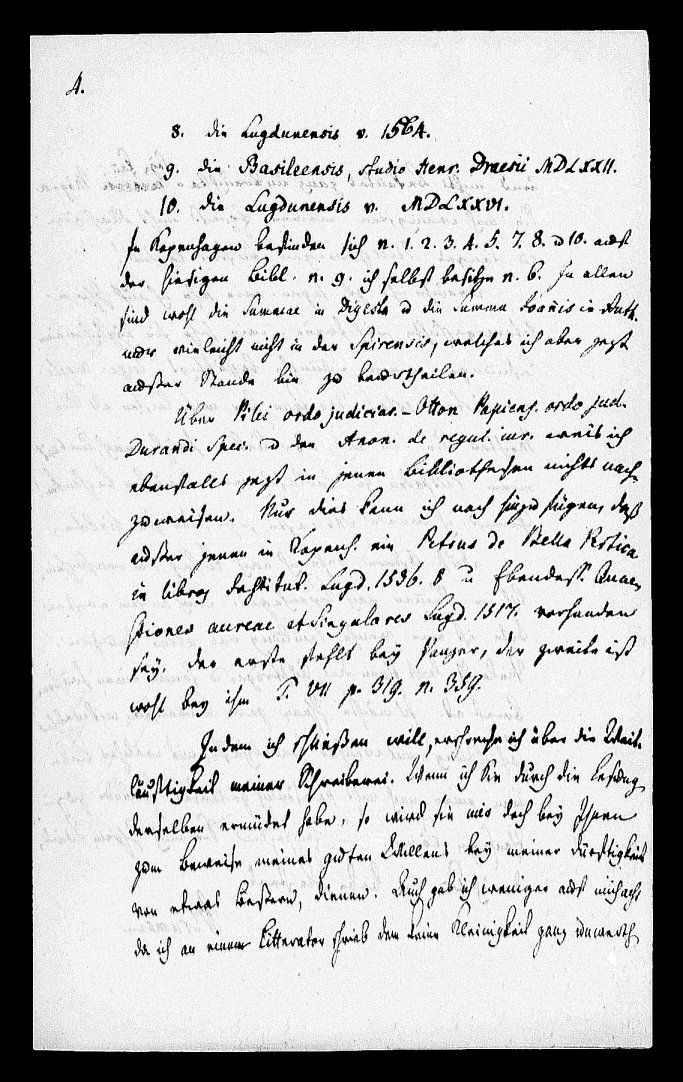 4.
8. die Lugdunensis v. 1564.
9. die Basileensis, studio Henr. Draesii MDLXXII.
10. die Lugdunensis v. MDLXXVI.
In Kopenhagen befinden sich n. 1. 2. 3. 4. 5. 7. 8. u 10. auf
der hiesigen Bibl. n. 9. ich selbst besitze n. 6. In allen
sind wohl die Summae in Digesta u die Summa Ioannis in Auth.
nur vieleicht nicht in der Spirensis, welches ich aber jezt
außer Stande bin zu beurtheilen.
Über Pilei ordo judiciar. – Otton Papiens. ordo jud.
Durandi Spec. u den Anon. de regul. iur. weis ich
ebenfalls jezt in jenen Bibliotheken nichts nach-
zuweisen. Nur dies kann ich noch hinzu fügen, daß
außer jenen in Kopenh. ein Petrus de Bella Pertica
in libros Institut. Lugd. 1536. 8 u Ebendess. Quae-
stiones aureae et singulares Lugd. 1517. vorhanden
sey. der erste fehlt bey Panzer, der zweite ist
wohl bey ihm T. VII p. 319. n. 359.
Indem ich schließen will, erschrecke ich über die Weit-
läuftigkeit meiner Schreiberei. Wenn ich Sie durch die Lesung
derselben ermüdet habe, so wird sie mir doch bey Ihnen
zum Beweise meines guten Willens bey meiner Dürftigkeit
von etwas Beßern, dienen. Auch gab ich weniger auf mich acht
da ich an einem Litterator schrieb dem keine Kleinigkeit ganz unwerth